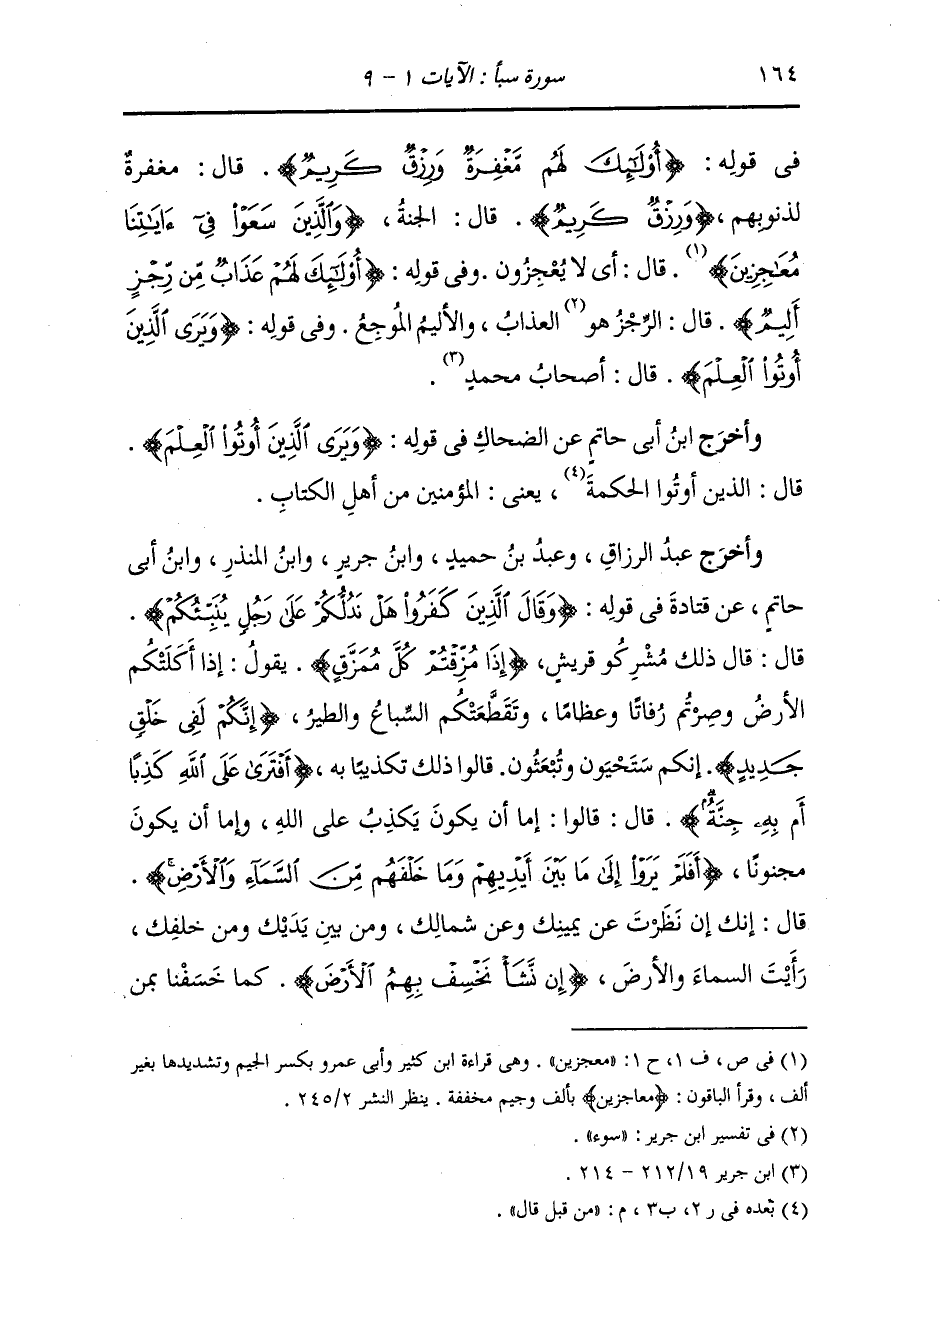 ١٦٤ سورة سبأ : الآيات ١ - ٩
فى قولِه : ﴿أُوْلَٰٓئِكَ لَهُم مَّغْفِرَةٌ وَرِزْقٌ كَرِيمٌ﴾ . قال : مغفرةٌ
لذنوبِهم ، ﴿وَرِزْقٌ كَرِيمٌ﴾ . قال : الجنةُ ، ﴿وَٱلَّذِينَ سَعَوْا۟ فِىٓ ءَايَٰتِنَا
مُعَٰجِزِينَ﴾(١) . قال : أى لا يُعْجِزون . وفى قولِه : ﴿أُوْلَٰٓئِكَ لَهُمْ عَذَابٌ مِّن رِّجْزٍ
أَلِيمٌ﴾ . قال : الرِّجْزُ هو(٢) العذابُ ، والأليمُ المُوجِعُ . وفى قولِه : ﴿وَيَرَى ٱلَّذِينَ
أُوتُوا۟ ٱلْعِلْمَ﴾ . قال : أصحابُ محمدٍ(٣) .
وأخرَج ابنُ أبى حاتمٍ عن الضحاكِ فى قولِه : ﴿وَيَرَى ٱلَّذِينَ أُوتُوا۟ ٱلْعِلْمَ﴾ .
قال : الذين أوتُوا الحكمةَ(٤) ، يعنى : المؤمنين من أهلِ الكتابِ .
وأخرَج عبدُ الرزاقِ ، وعبدُ بنُ حميدٍ ، وابنُ جريرٍ ، وابنُ المنذرِ ، وابنُ أبى
حاتمٍ ، عن قتادةَ فى قولِه : ﴿وَقَالَ ٱلَّذِينَ كَفَرُوا۟ هَلْ نَدُلُّكُمْ عَلَىٰ رَجُلٍ يُنَبِّئُكُمْ﴾ .
قال : قال ذلك مُشْرِكُو قريشٍ، ﴿إِذَا مُزِّقْتُمْ كُلَّ مُمَزَّقٍ﴾ . يقولُ : إذا أكَلَتْكُم
الأرضُ وصِرْتُم رُفاتًا وعظامًا ، وتَقَطَّعَتْكُم السِّباعُ والطيرُ ، ﴿إِنَّكُمْ لَفِى خَلْقٍ
جَدِيدٍ﴾. إنكم سَتَحْيَون وتُبْعَثُون. قالوا ذلك تكذيبًا به ، ﴿أَفْتَرَىٰ عَلَى ٱللَّهِ كَذِبًا
أَم بِهِۦ جِنَّةٌۢ﴾ . قال : قالوا : إما أن يكونَ يَكذِبُ على اللهِ ، وإما أن يكونَ
مجنونًا ، ﴿أَفَلَمْ يَرَوْا۟ إِلَىٰ مَا بَيْنَ أَيْدِيهِمْ وَمَا خَلْفَهُم مِّنَ ٱلسَّمَآءِ وَٱلْأَرْضِ﴾ .
قال : إنك إن نَظَرْتَ عن يمينِك وعن شمالِك ، ومن بينِ يَدَيْك ومن خلفِك ،
رَأَيْتَ السماءَ والأرضَ ، ﴿إِن نَّشَأْ نَخْسِفْ بِهِمُ ٱلْأَرْضَ﴾ . كما خَسَفْنا بمن
(١) فى ص، ف ١، ح ١: «معجزين» . وهى قراءة ابن كثير وأبى عمرو بكسر الجيم وتشديدها بغير
ألف ، وقرأ الباقون : ﴿معاجزين﴾ بألف وجيم مخففة . ينظر النشر ٢٤٥/٢ .
(٢) فى تفسير ابن جرير : «سوء» .
(٣) ابن جرير ٢١٢/١٩ - ٢١٤ .
(٤) بعده فى ر ٢، ب ٣ ، م : «من قبل قال» .